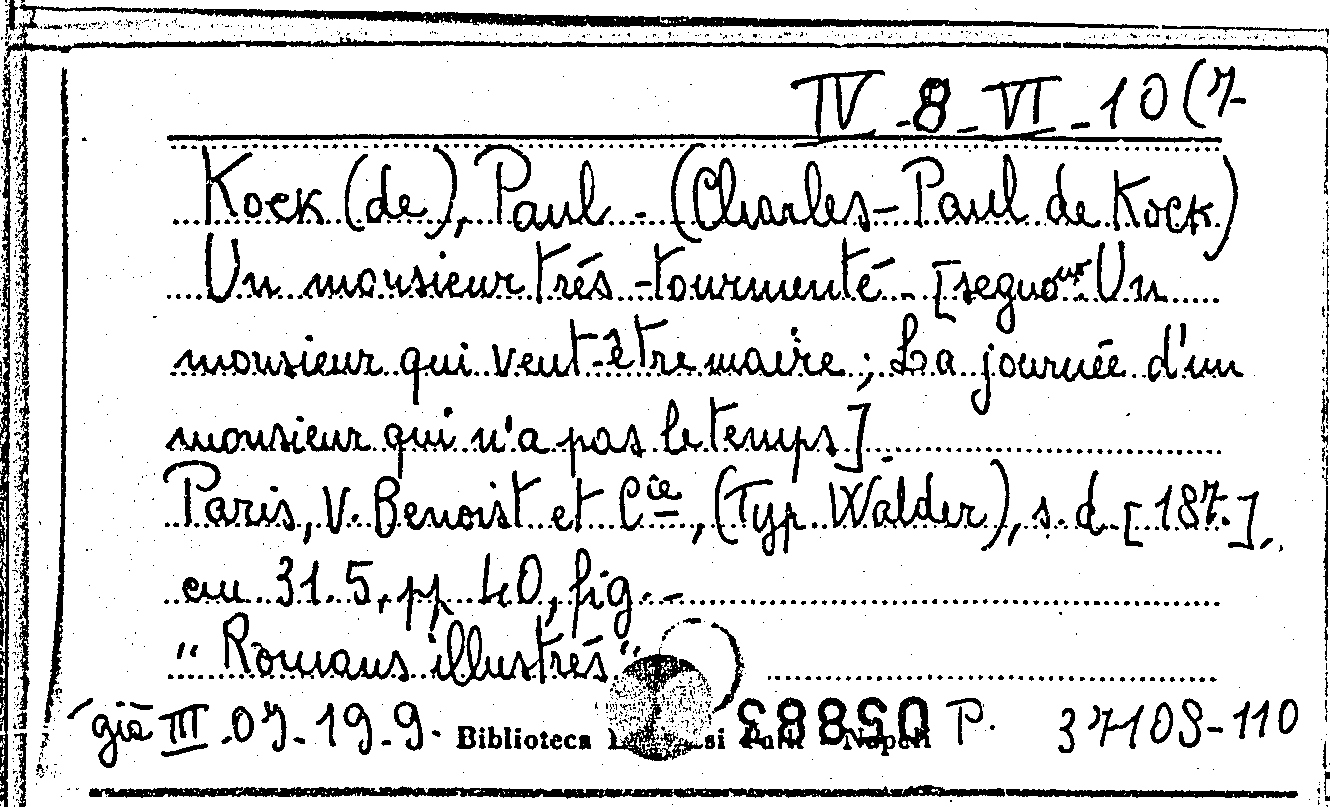 IV-8-VI-10(7-
Kock (de), Paul - (Charles-Paul de Kock)
Un monsieur très-tourmenté - [seguono: Un
monsieur qui veut-être maire; La journée d'un
monsieur qui n'a pas le temps].
Paris, V. Benoist et Cie, (Typ. Walder), s. d. [187.],
cm 31.5, pp. 40, fig. -
"Romans illustrés"
già III.07-19-9. Biblioteca si - Napoli P. 37108-110